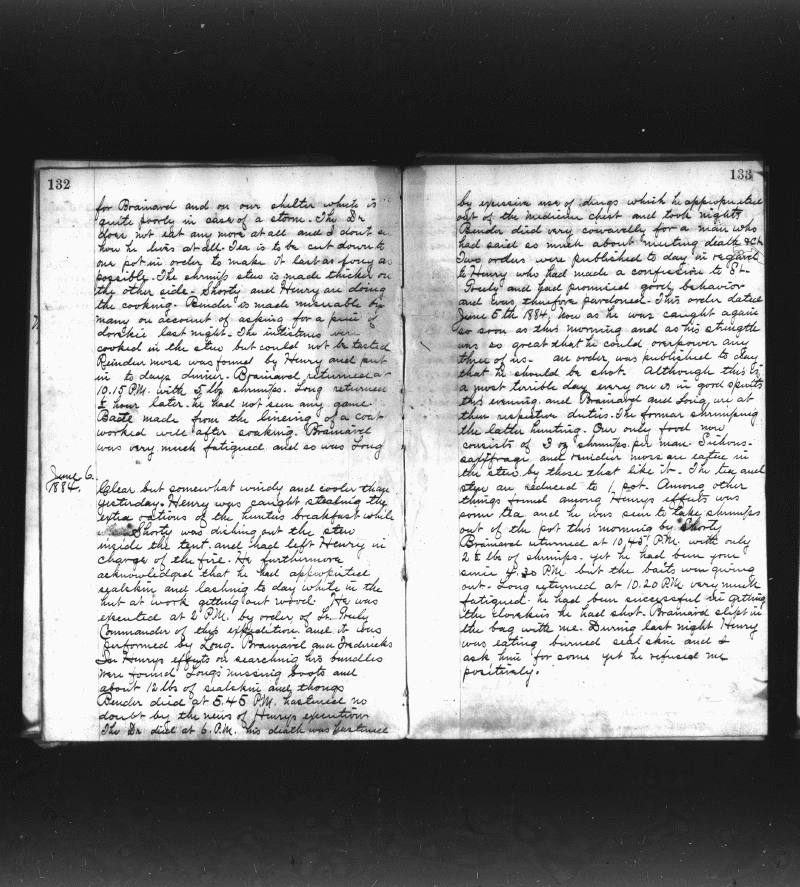 132
for Brainard and on our shelter which is
quite poorly in case of a storm. The Dr
does not eat any more at all and I dont see
how he lives at all. Tea is to be cut down to
one pot in order to make it last as long as
possible. The shrimp stew is made thicker on
the other side. Shorty and Henry are doing
the cooking. Bender is made miserable by
many on account of asking for a piece of
dovekie last night. The intestines were
cooked in the stew but could not be tasted
Reindeer moss was found by Henry and put
in to days dinner. Brainard returned at
10.15 P.M. with 5 lbs shrimps. Long returned
½ hour later. he had not seen any game.
Baite made from the lineing of a coat
worked well after soaking. Brainard
was very much fatigued and so was Long
June 6.
1884.
Clear but somewhat windy and cooler than
yesterday. Henry was caught stealing the
extra rations of the hunters breakfast while
Shorty was dishing out the stew
inside the tent and had left Henry in
charge of the fire. He furthermore
acknowledged that he had appropriated
sealskin and lashing to day while in the
hut at work getting out wood. He was
executed at 2 P.M. by order of Lt. Greely
Commander of this expedition and it was
performed by Long. Brainard and Fredericks
In Henrys effects on searching his bundles
were found Longs missing boots and
about 12 lbs of sealskin and thongs
Bender died at 5.45 P.M. hastened no
doubt by the news of Henrys execution
The Dr died at 6. P.M. his death was hastened
133
by excessive use of drugs which he appropriated
out of the medicine chest and took nights
Bender died very cowardly for a man who
had said so much about meeting death &ct.
Two orders were published to day in regard
to Henry who had made a confession to Lt.
Greely and had promised good behavior
and was therefore pardoned. This order dated
June 5th 1884, now as he was caught again
so soon as this morning and as his strength
was so great that he could overpower any
three of us - an order was published to day
that he should be shot. Although this is
a most terrible day every one is in good spirits
this evening and Brainard and Long are at
their respective duties. The former shrimping
the latter hunting. Our only food now
consists of 3 oz shrimps per man. Lichens.
saxifrage and reindeer moss are eaten in
the stew by those that like it. The tea and
stew are reduced to 1 pot. Among other
things found among Henrys effects was
some tea and he was seen to take shrimps
out of the pot this morning by Shorty
Brainard returned at 10.45 P.M. with only
2 ½ lbs of shrimps. yet he had been gone
since 4.30 P.M. but the baits were giving
out. Long returned at 10.20 P.M. very much
fatigued. he had been successful in getting
the dovekies he had shot. Brainard slept in
the bag with me. During last night Henry
was eating burned seal skin and I
ask him for some yet he refused me
positively.